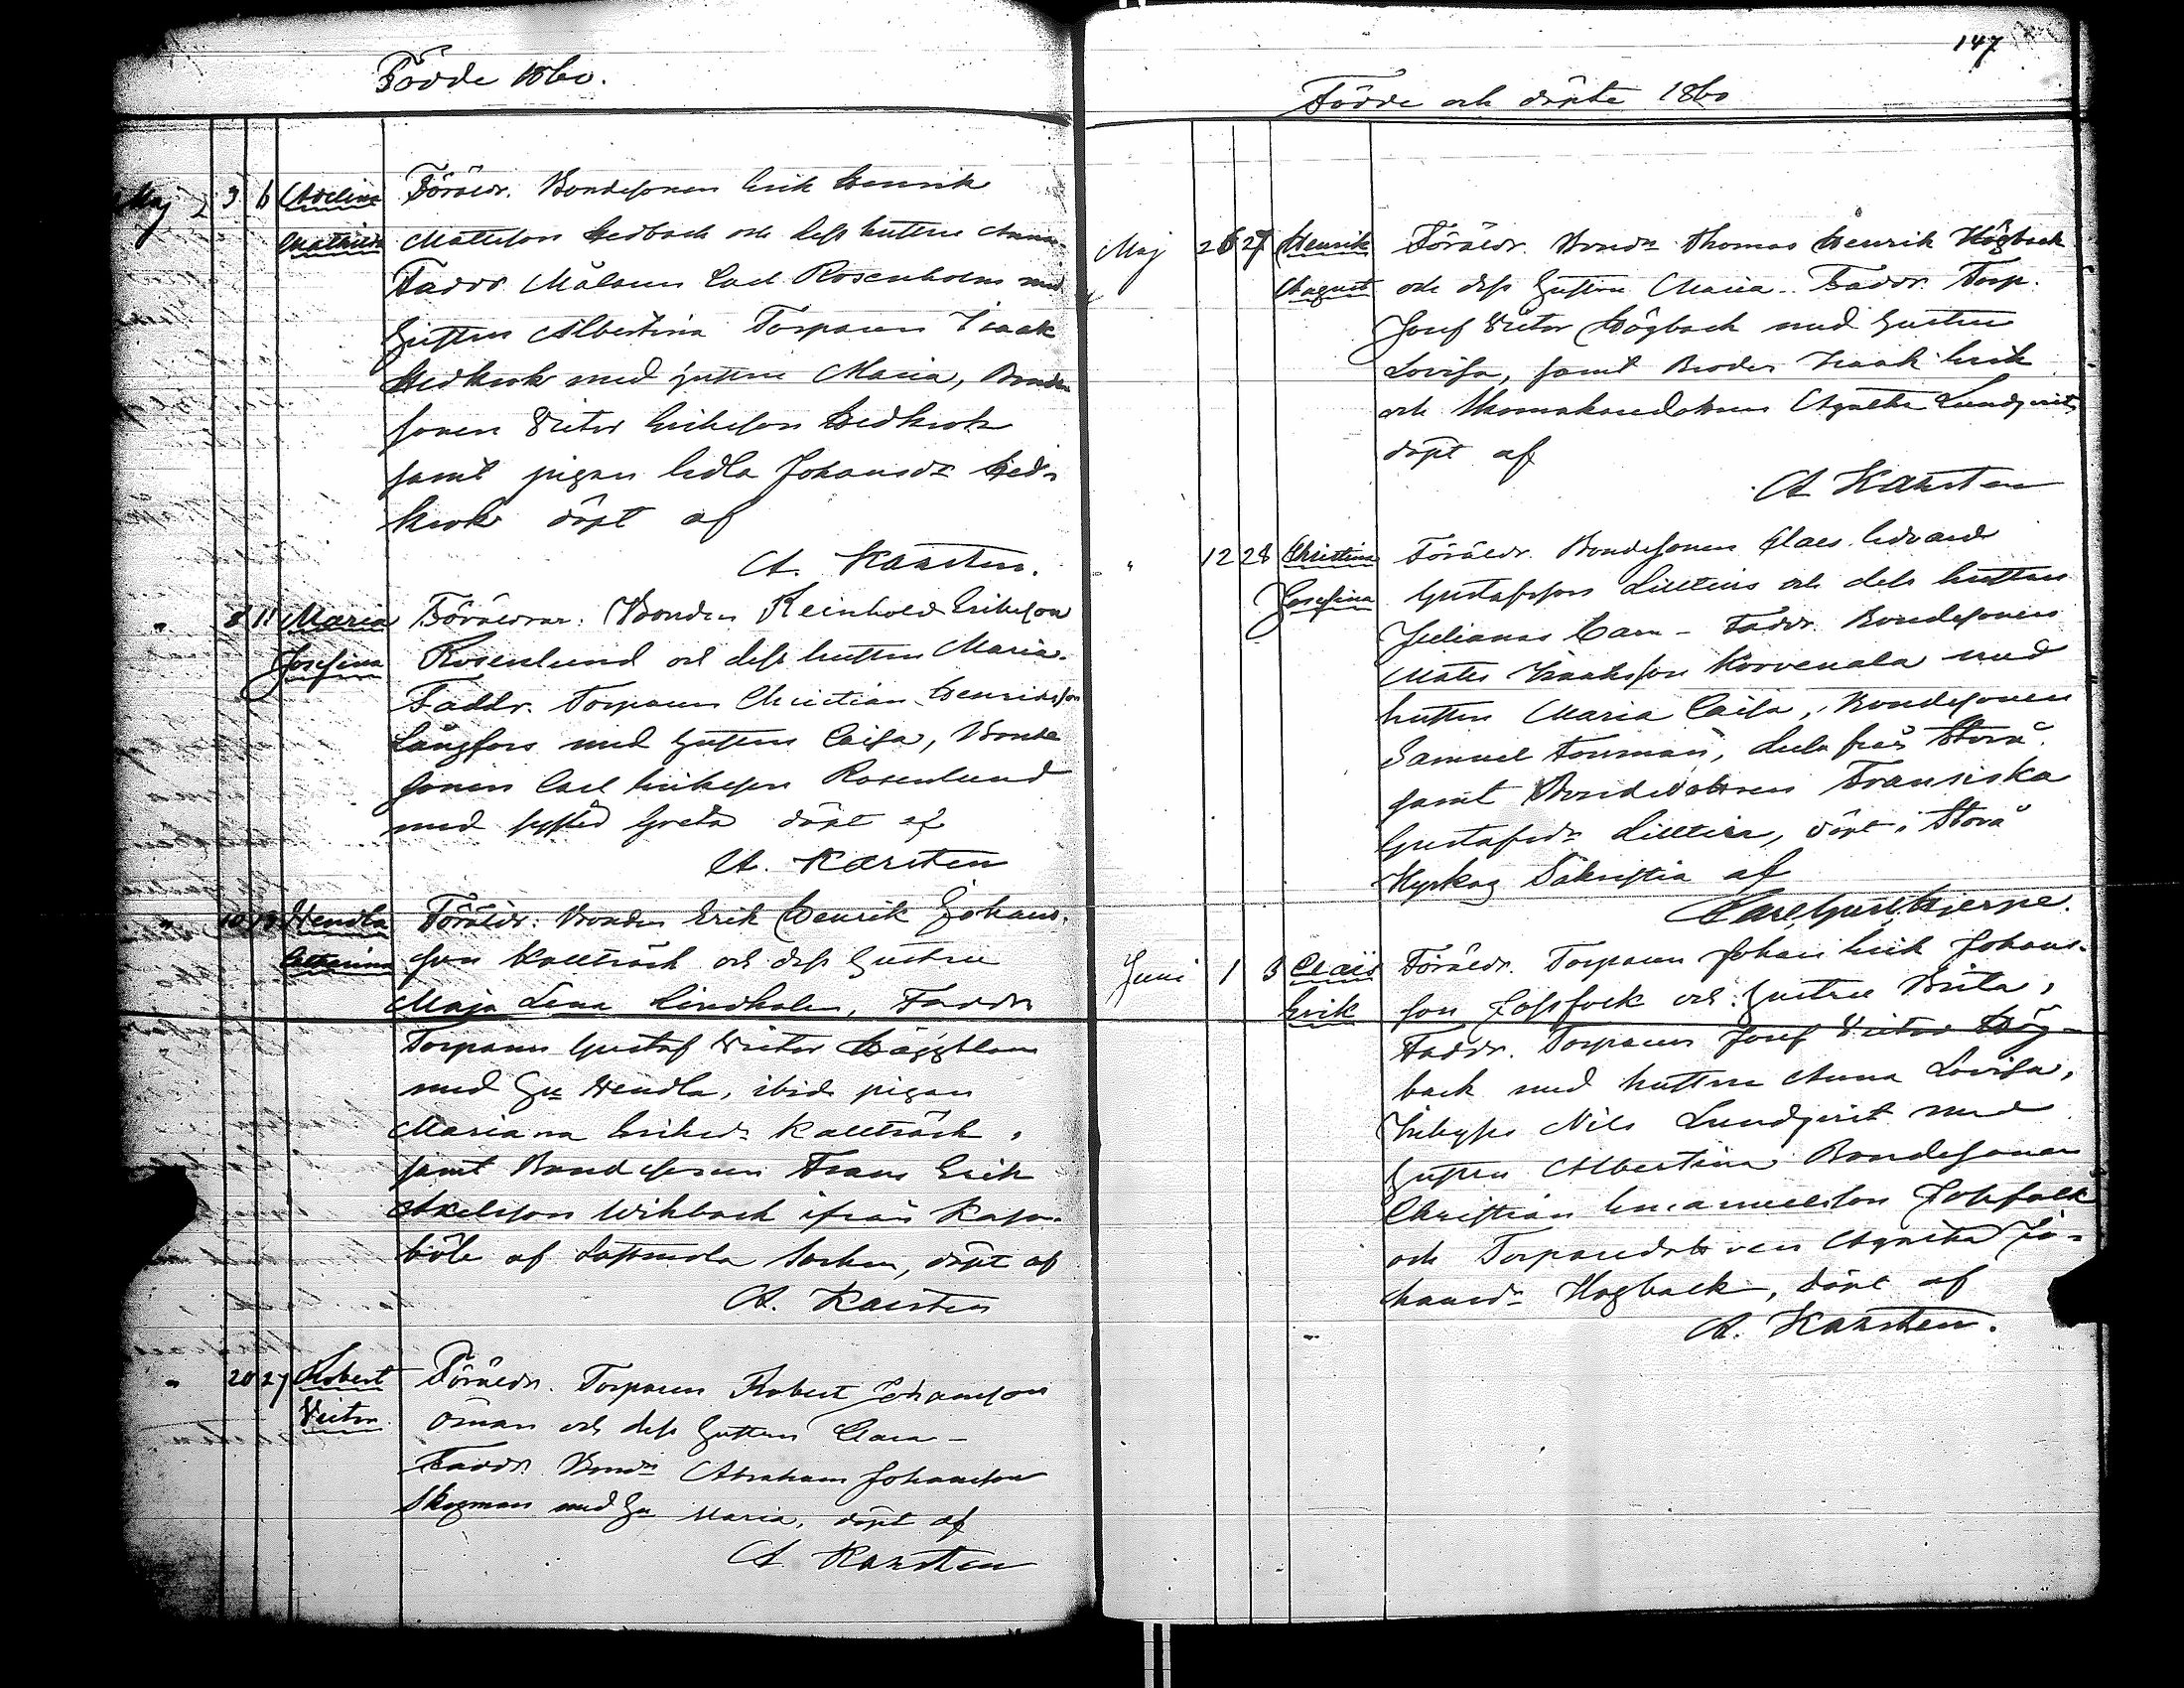 Födde 1860.
Maj 3 6 Adelina Föräldr. Bondesonen Erik Henrik
Mathilda Mattsson Hedback och dess hustru Anna
Faddr. Målaren Carl Rosenholm med
Hustru Albertina Torparen Isaak
Hedkrok med hustru Maria, Bonde
sonen Victor Eriksson Hedkrok
samt pigan Edla Johansdr Hed-
krok döpt af
A. Karsten.
" 8 11 Maria Föräldrar: Bonden Reinhold Eriksson
Josefina Rosenlund och dess hustru Maria.
Faddr. Torparen Christian Henriksson
Långfors med hustru Caisa, Bonde
sonen Carl Eriksson Rosenlund
med Greta döpt af
A. Karsten
" 10 13 Wendla Föräldr: Bonden Erik Henrik Johans-
Catharina son Kallträsk och dess Hustru
Maja Lena Lindholm, Faddr
Torparen Gustaf Victor Häggblom
med Hu Wendla, ibid pigan
Mariana Eriksdr Kallträsk,
samt Bondesonen Frans Erik
Axelsson Wikback ifrån
böle af Lappmola Socken, döpt af
A. Karsten
" 20 27 Robert Föräldr. Torparen Robert Johansson
Victor Öman och dess Hustru Clara -
Faddr. Bondn Abraham Johansson
Skogman med Hu Maria, döpt af
A. Karsten
147
Födde och döpte 1860
Maj 26 27 Henrik Föräldr. Bondn Thomas Henrik Högback
August och dess Hustru Maria - Faddr. Torp.
Josef Victor Högback med Hustru
Lovisa, samt Broder Isaak Erik
och Agatha Lundqvist,
döpt af
A Karsten
" 12 28 Christina Föräldr. Bondesonen Claes Edvard
Josefina Gustafsson Lilltius och dess hustru
Juliana - Faddr. Bondesonen
Mats Isaksson Korvenala med
hustru Maria Caisa, Bondesonen
Samuel från Storå
samt Bondedottren Fransiska
Gustafsdr, döpt i Storå
Kyrkas Sakristia af
Carl Gust. Hjerpe.
Juni 1 3 Claës Föräldr. Torparen Johan Erik Johans-
Erik son och Hustru Brita,
Faddr. Torparen Josef Victor Hög-
back med hustru Anna Lovisa,
Nils Lundqvist med
hustru Albertina Bondesonen
Christian Emanuelsson
och Torparedottren Agatha Jo-
hansdr Hogback, döpt af
A. Karsten.